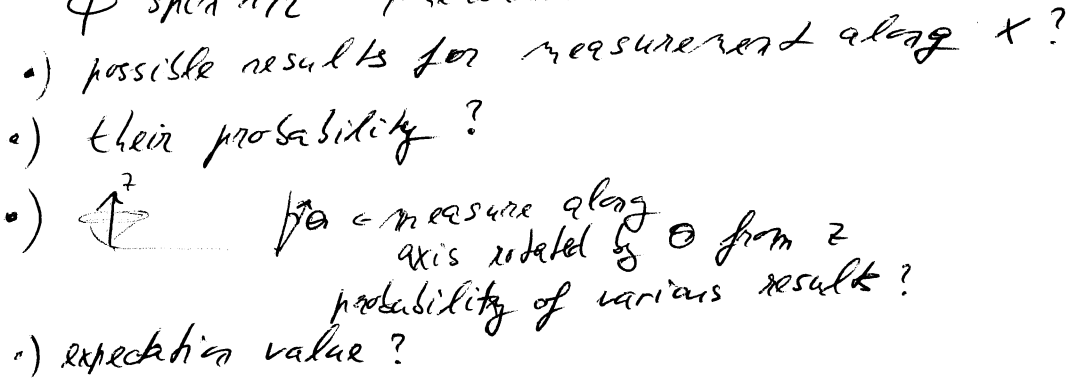 spin 1/2
•) possible results for measurement along x?
•) their probability?
•) z θ ← measure along
axis rotated by θ from z
probability of various results?
•) expectation value?